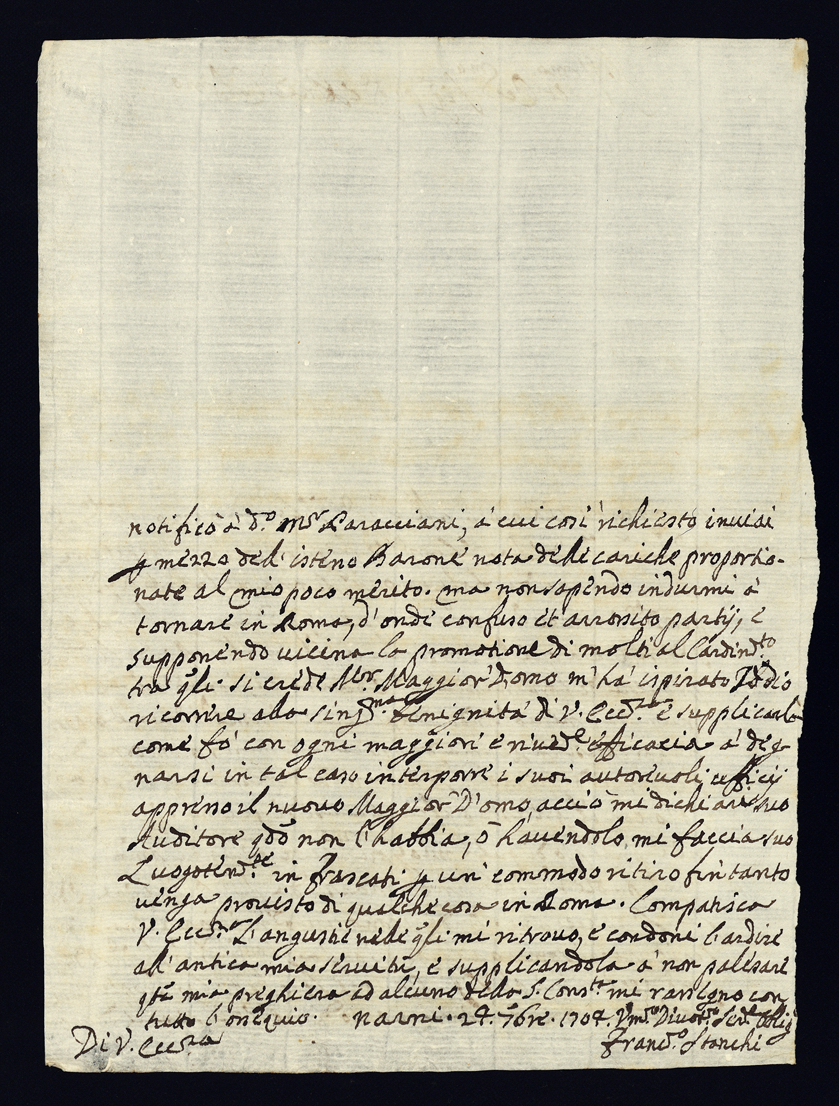 notificò à d.º Mõr Paracciani, à cui così richiesto inviai
p mezzo dell'istesso Barone nota delle cariche proportio-
nate al mio poco merito. ma non sapendo indurmi à
tornare in Roma, d'onde confuso et arrossito partij, e
supponendo vicina la promotione di molti al Cardin.to
tra qli si crede Mor. Maggior'Domo m'hà ispirato Iddio
ricorrere alla sing.ma benignità di V. Ecc.za e supplicarla
come fò con ogni maggiori e efficacia à deg-
narsi in tal caso interporre i suoi autorevoli officij
appresso il nuovo Maggior'Domo, acciò mi dichiari suo
Auditore qdo non l'habbia, ò havendolo, mi faccia suo
Luogoten.te in Frascati p un'commodo ritiro fin tanto
venga provisto di qualche cosa in Roma. Compatisca
V. Ecc.za l'angustie nelle qli mi ritrovo, e condoni l'ardire
all'antica mia servitù, e supplicandola à non palesare
qta mia preghiera ad alcuno della S. Cons.ta mi rassegno con
tutto l'ossequio. Narni. 24. 7bre. 1704. Vm.º Divot.º Ser.e oblig
Di V. Ecc.za Franc.º Stanchi